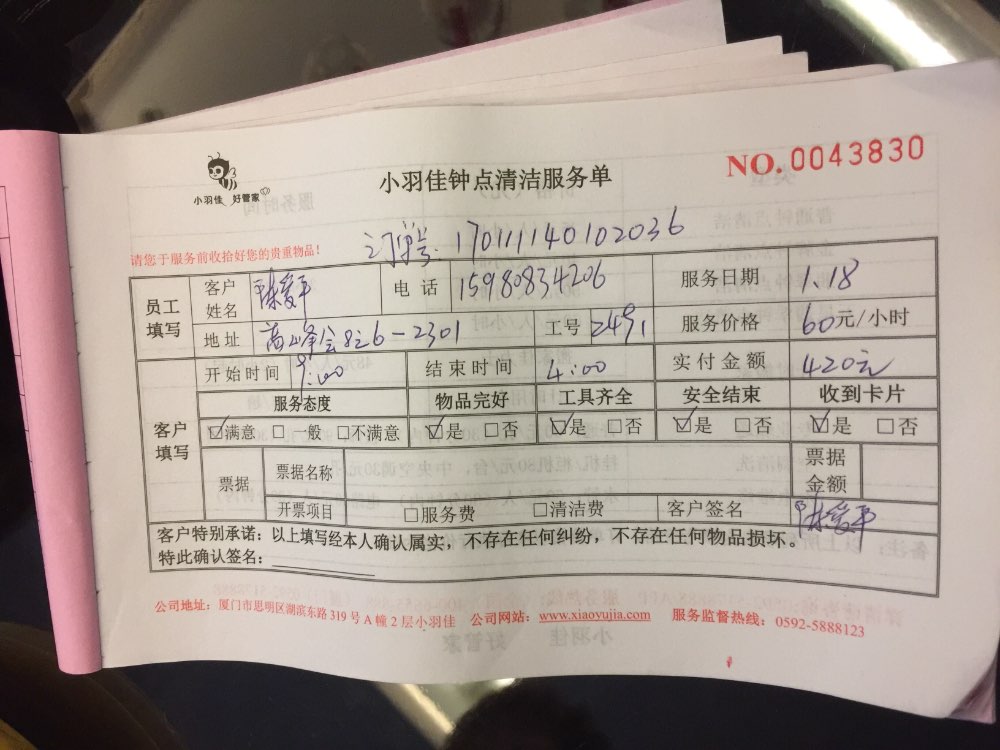 小羽佳 好管家
小羽佳钟点清洁服务单
NO.0043830
请您于服务前收拾好您的贵重物品！
订单号：17011140102036
员工填写 客户姓名 陈爱平 电话 15980834206 服务日期 1.18
地址 2301 工号 服务价格 60元/小时
开始时间 9:00 结束时间 4:00 实付金额 420元
客户填写 服务态度 物品完好 工具齐全 安全结束 收到卡片
☑满意 □一般 □不满意 ☑是 □否 ☑是 □否 ☑是 □否 ☑是 □否
票据 票据名称 票据金额
开票项目 □服务费 □清洁费 客户签名 陈爱平
客户特别承诺：以上填写经本人确认属实，不存在任何纠纷，不存在任何物品损坏。
特此确认签名：
公司地址：厦门市思明区湖滨东路 319 号 A 幢 2 层小羽佳 公司网站：www.xiaoyujia.com 服务监督热线：0592-5888123